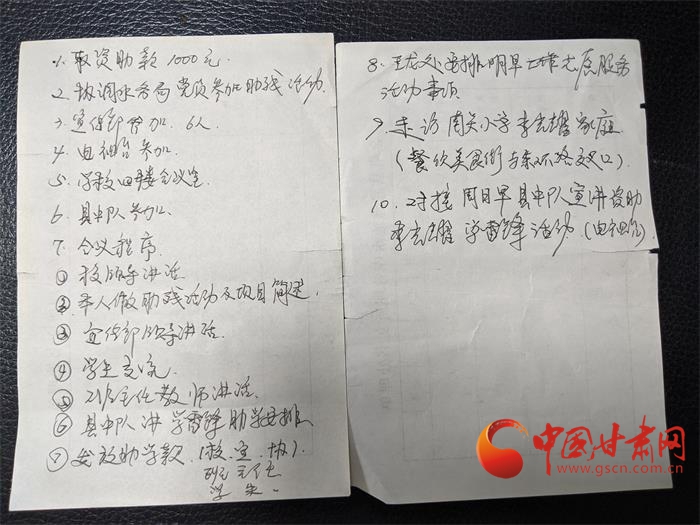 1. 取资助款 1000元.
2. 协调水务局党员参加助残活动.
3. 宣传部参加. 6人
4. 电视台参加.
5. 学校四楼会议室
6. 县中队参加.
7. 会议程序
① 校领导讲话
② 本人做助残活动及项目简述.
③ 宣传部领导讲话.
④ 学生交流
⑤ 班主任教师讲话.
⑥ 县中队讲学雷锋助学安排
⑦ 发放助学款. (校、宣、协).
班主任
学生
8. 安排明早工作志愿服务
活动事项
9. 走访周关小学李 家庭
(餐饮美食街与东环路交叉口).
10. 对接周日早县中队宣讲资助
李 学雷锋活动 (电视台)
中国甘肃网
www.gscn.com.cn